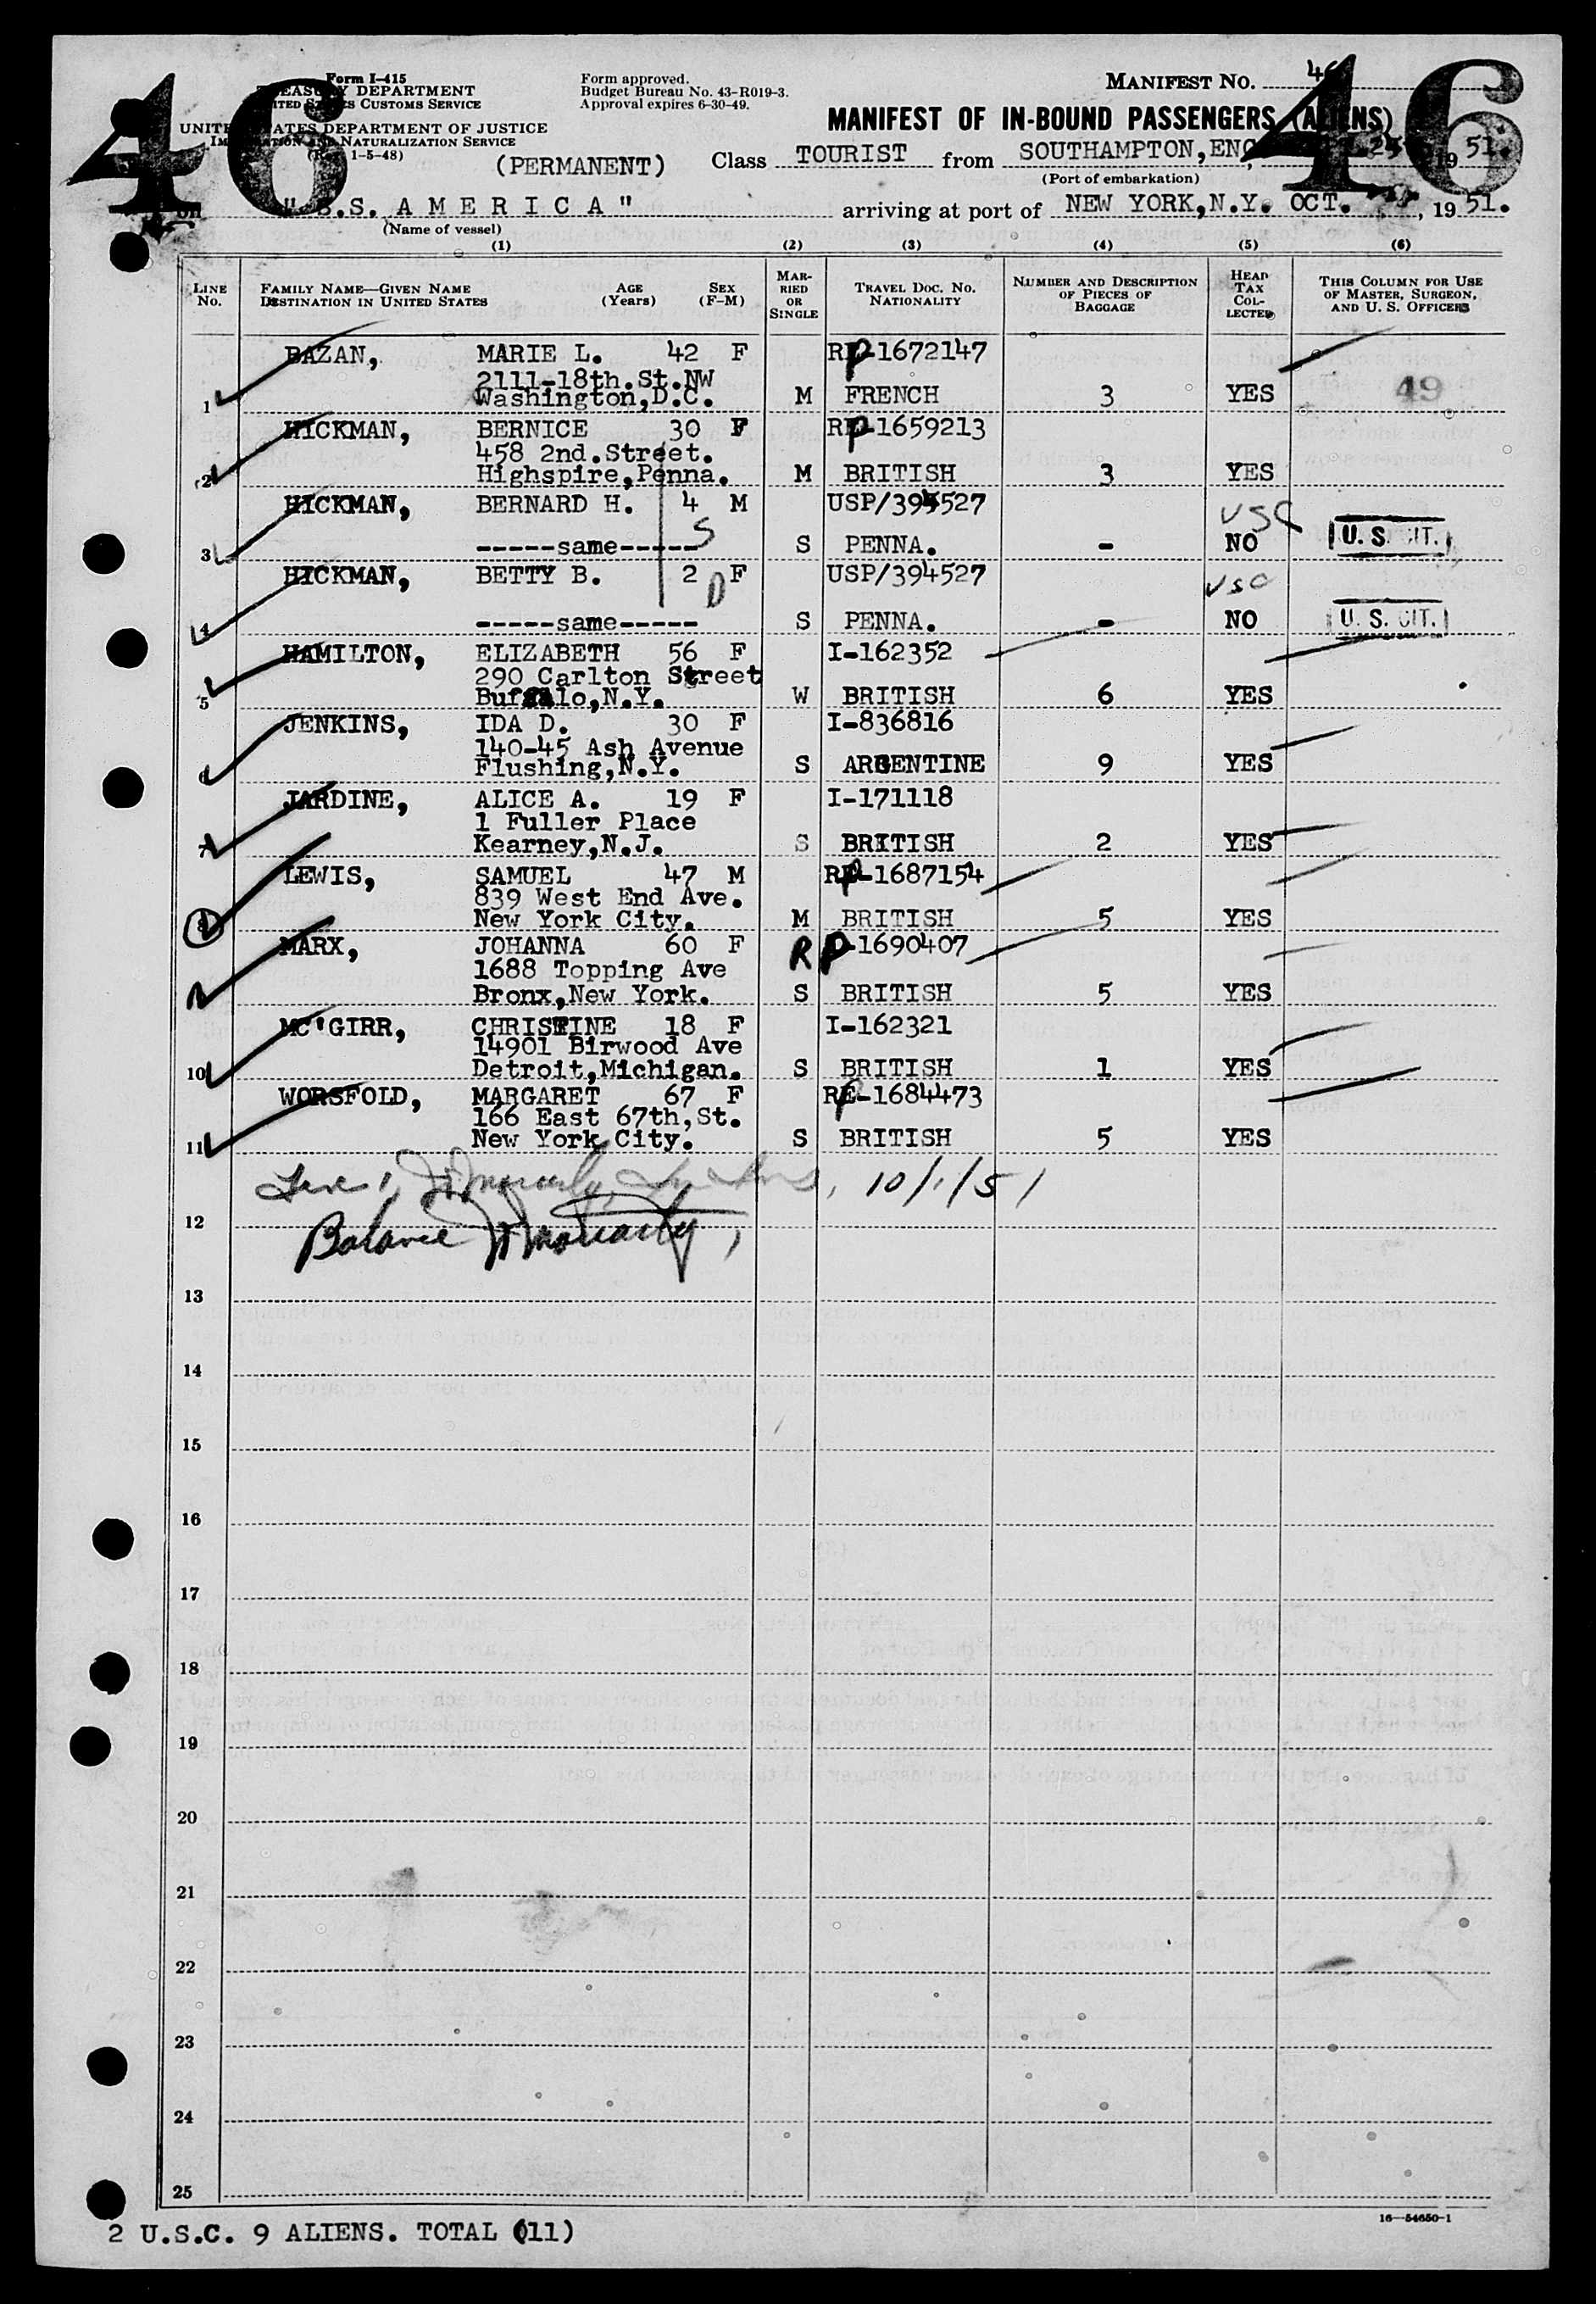 46 46
Form I-415
TREASURY DEPARTMENT
UNITED STATES CUSTOMS SERVICE
UNITED STATES DEPARTMENT OF JUSTICE
IMMIGRATION AND NATURALIZATION SERVICE
1-5-48)
Form approved.
Budget Bureau No. 43-R019-3.
Approval expires 6-30-49.
MANIFEST NO. 46
MANIFEST OF IN-BOUND PASSENGERS (ALIENS)
(PERMANENT) Class TOURIST from SOUTHAMPTON, ENG, 1951.
(Port of embarkation)
on "S.S. AMERICA" arriving at port of NEW YORK,N.Y. OCT. , 1951.
(Name of vessel)
(1) (2) (3) (4) (5) (6)
LINE No. FAMILY NAME—GIVEN NAME DESTINATION IN UNITED STATES AGE (Years) SEX (F-M) MARRIED OR SINGLE TRAVEL DOC. NO. NATIONALITY NUMBER AND DESCRIPTION OF PIECES OF BAGGAGE HEAD TAX COLLECTED THIS COLUMN FOR USE OF MASTER, SURGEON, AND U. S. OFFICERS
BAZAN, MARIE L. 42 F RP-1672147
2111-18th.St.NW
1 Washington,D.C. M FRENCH 3 YES 49
HICKMAN, BERNICE 30 F RP-1659213
458 2nd.Street.
2 Highspire,Penna. M BRITISH 3 YES
HICKMAN, BERNARD H. 4 M USP/394527
S USC
3 -----same----- S PENNA. - NO U. S. CIT.
HICKMAN, BETTY B. 2 F USP/394527
D USC
4 -----same----- S PENNA. - NO U. S. CIT.
HAMILTON, ELIZABETH 56 F I-162352
290 Carlton Street
5 Buffalo,N.Y. W BRITISH 6 YES
JENKINS, IDA D. 30 F I-836816
140-45 Ash Avenue
6 Flushing,N.Y. S ARGENTINE 9 YES
JARDINE, ALICE A. 19 F I-171118
1 Fuller Place
7 Kearney,N.J. S BRITISH 2 YES
LEWIS, SAMUEL 47 M RP-1687154
839 West End Ave.
8 New York City. M BRITISH 5 YES
MARX, JOHANNA 60 F RP-1690407
1688 Topping Ave
Bronx,New York. S BRITISH 5 YES
MC'GIRR, CHRISTINE 18 F I-162321
14901 Birwood Ave
10 Detroit,Michigan. S BRITISH 1 YES
WORSFOLD, MARGARET 67 F RP-1684473
166 East 67th,St.
11 New York City. S BRITISH 5 YES
10/1/51
12 Balance
13
14
15
16
17
18
19
20
21
22
23
24
25
16—54650-1
2 U.S.C. 9 ALIENS. TOTAL (11)